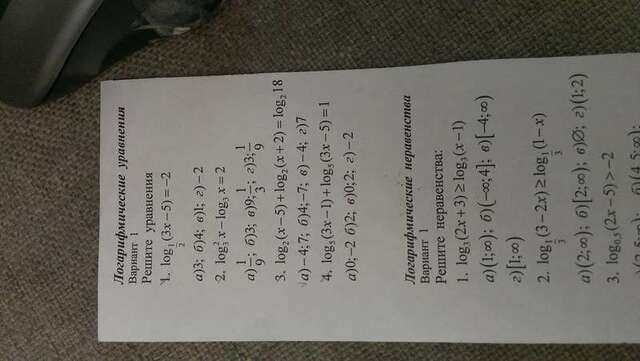 Логарифмические уравнения
Вариант 1
Решите уравнения
1. log_{1/2}(3x−5)=−2
а)3; б)4; в)1; г)−2
2. log_3^2 x−log_3 x=2
а)1/9; б)3; в)9;1/3; г)3;1/9
3. log_2(x−5)+log_2(x+2)=log_2 18
а)−4;7; б)4;−7; в)−4; г)7
4. log_5(3x−1)+log_5(3x−5)=1
а)0;−2 б)2; в)0;2; г)−2
Логарифмические неравенства
Вариант 1
Решите неравенства:
1. log_3(2x+3)≥log_3(x−1)
а)(1;∞); б)(−∞;4]; в)[−4;∞)
г)[1;∞)
2. log_{1/3}(3−2x)≥log_{1/3}(1−x)
а)(2;∞); б)[2;∞); в)∅; г)(1;2)
3. log_{0,5}(2x−5)>−2